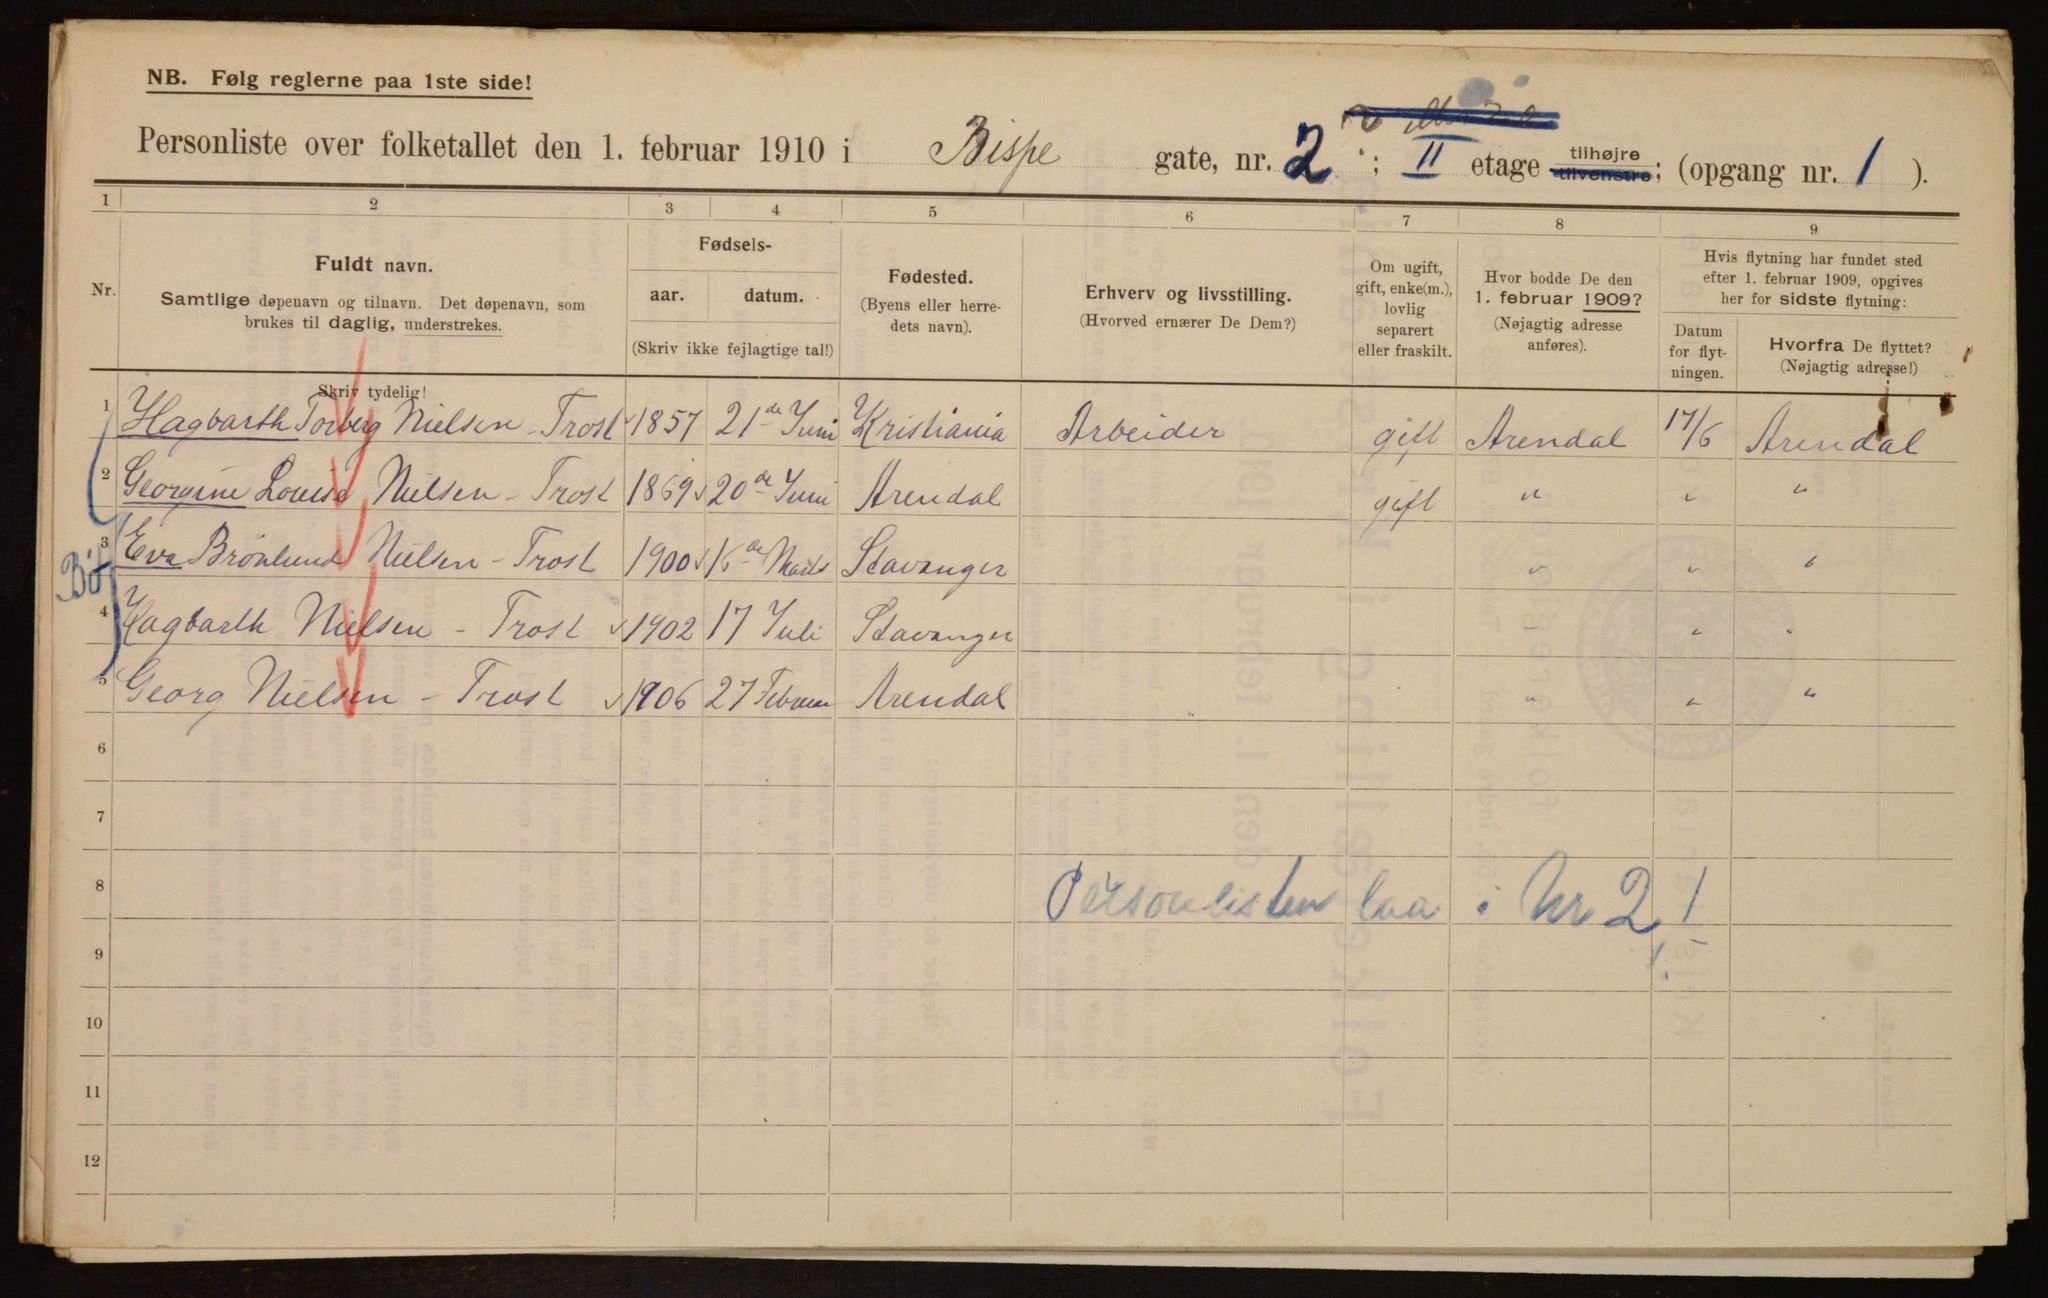 NB. Følg reglerne paa 1ste side!
Personliste over folketallet den 1. februar 1910 i Bispe gate, nr. 2; II etage tilhøjre tilvenstre; (opgang nr. 1).
1 2 3 4 5 6 7 8 9
Nr.
Fuldt navn.
Samtlige døpenavn og tilnavn. Det døpenavn, som
brukes til daglig, understrekes.
Skriv tydelig!
Fødsels-
aar. datum.
(Skriv ikke fejlagtige tal!)
Fødested.
(Byens eller herre-
dets navn).
Erhverv og livsstilling.
(Hvorved ernærer De Dem?)
Om ugift,
gift, enke(m.),
lovlig
separert
eller fraskilt.
Hvor bodde De den
1. februar 1909?
(Nøjagtig adresse
anføres).
Hvis flytning har fundet sted
efter 1. februar 1909, opgives
her for sidste flytning:
Datum
for flyt-
ningen.
Hvorfra De flyttet?
(Nøjagtig adresse!)
1 Hagbarth Torberg Nielsen - Trost 1857 21de Juni Kristiania Arbeider gift Arendal 17/6 Arendal
2 Georgine Louise Nielsen - Trost 1869 20de Juni Arendal gift " " "
3 Eva Brönlund Nielsen - Trost 1900 16de Marts Stavanger " " "
Bø
4 Hagbarth Nielsen - Trost 1902 17 Juli Stavanger " " "
5 Georg Nielsen - Trost 1906 27 Februar Arendal " " "
6
7
8 Personlisten laa i Nr 2, 1
9
10
11
12